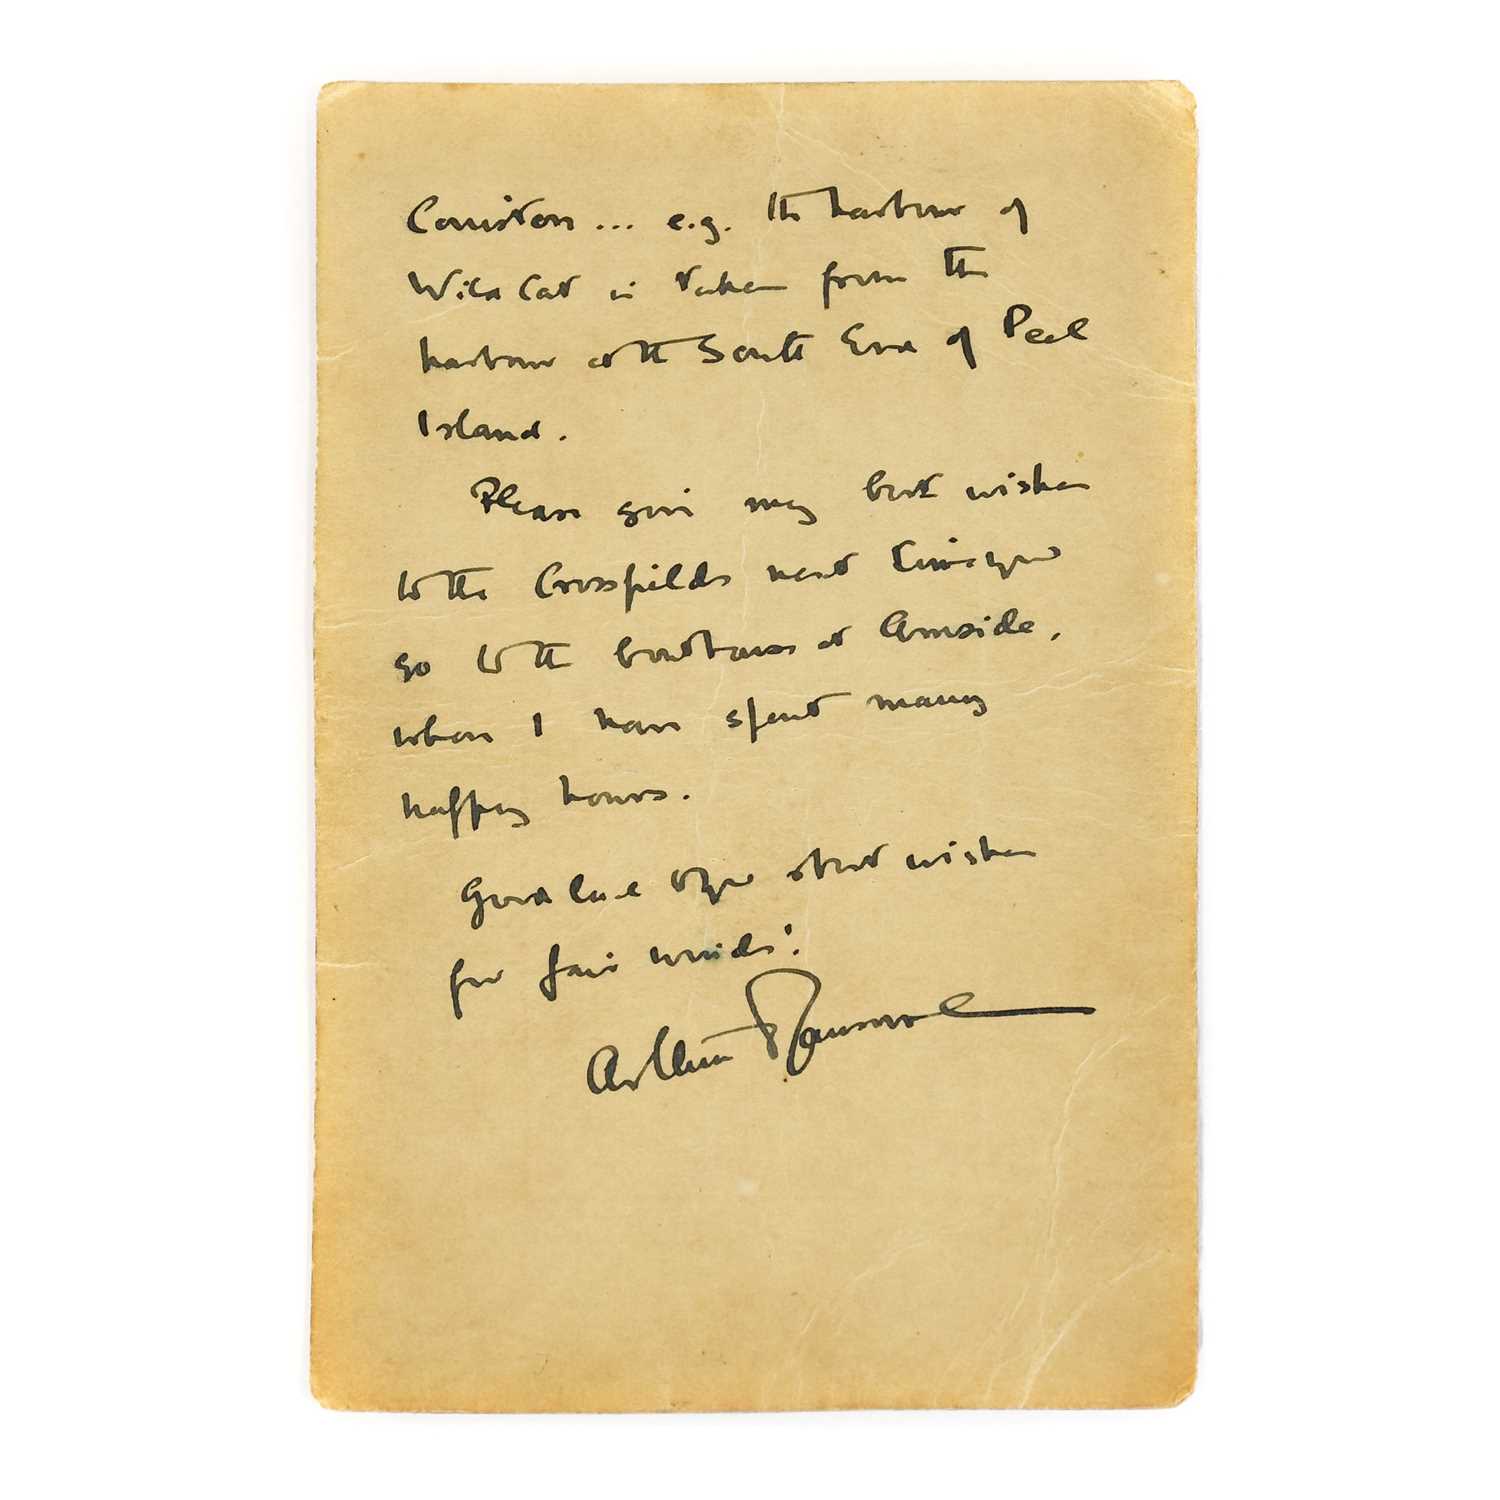 Coniston ... e.g. the harbour of
Wild Cat is taken from the
harbour at the South End of Peel
Island.
Please give my best wishes
to the Crossfields next time you
go to the boathouse at Arnside,
where I have spent many
happy hours.
Good luck to you & best wishes
for fair winds!
Arthur Ransome